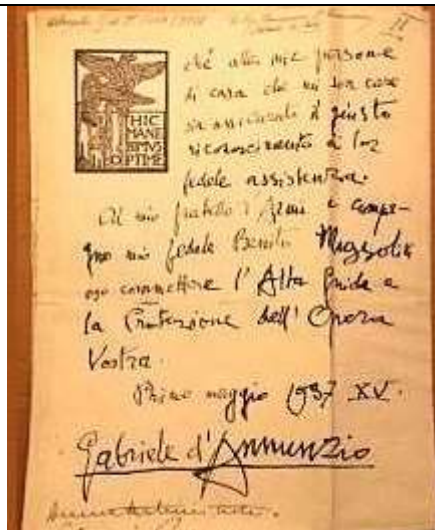 HIC
MANE
BIMVS
OPTIME
alle mie persone
di casa che mi son care
sia assicurato il giusto
riconoscimento a lor
fedele assistenza.
Al mio fratello d'Armi e compa-
gno mio fedele Benito Mussolini
oso commettere l'Alta Guida e
la Protezione dell'Opera
Vostra.
Primo maggio 1937 XV.
Gabriele d'Annunzio